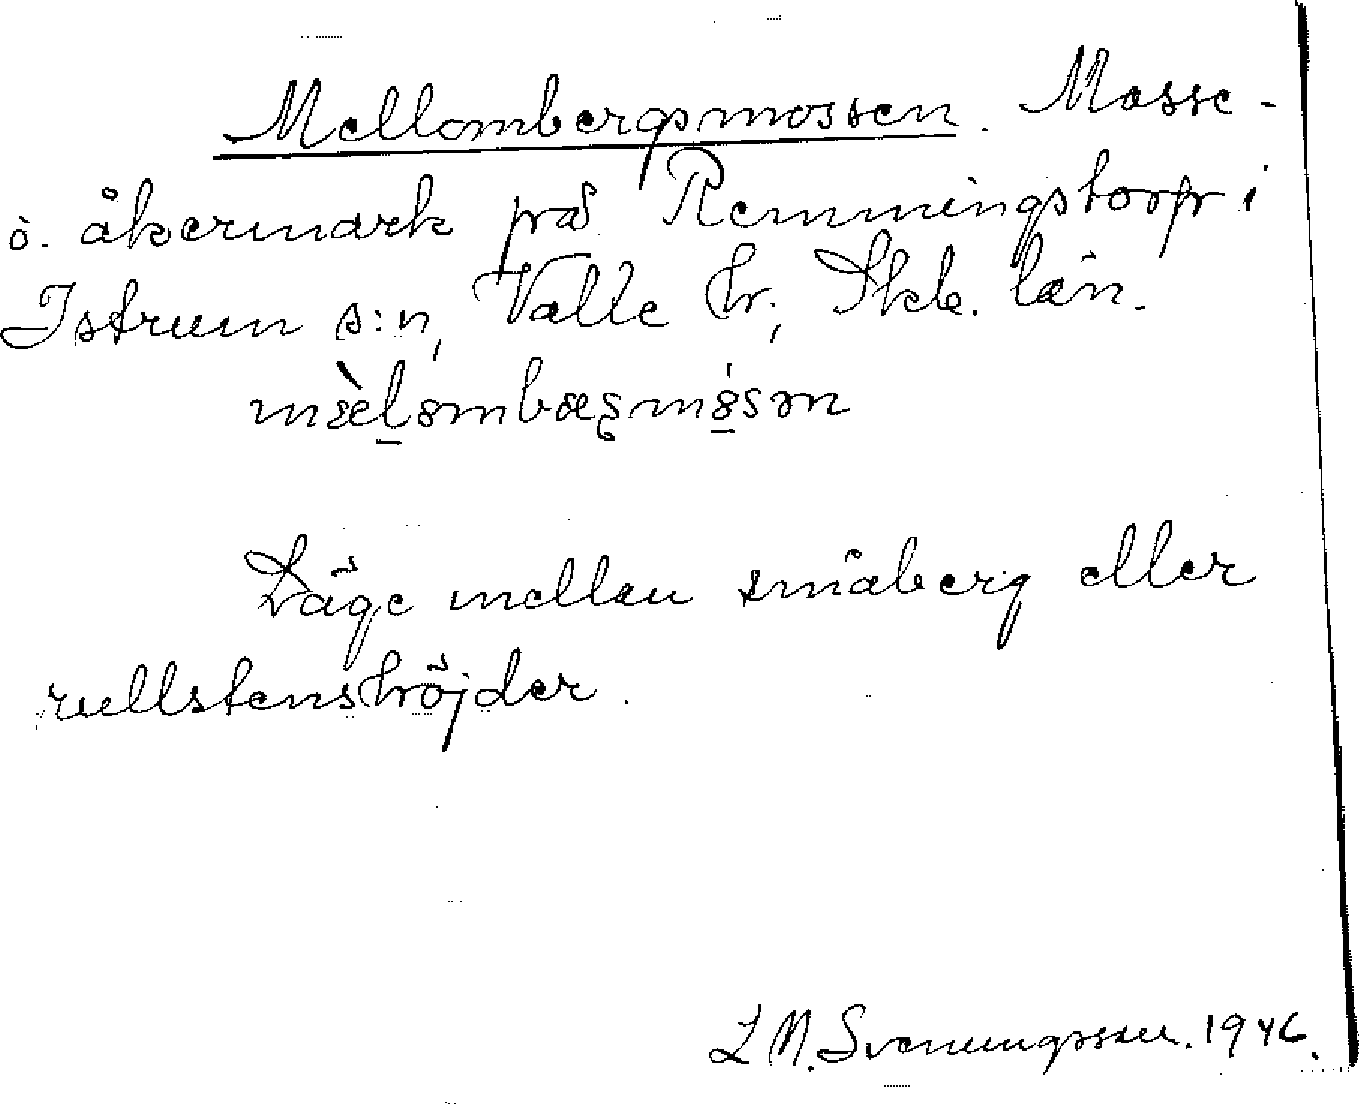 Mellombergsmossen. Mosse-
o. åkermark på Remmingstorp i
Istrum s:n, Valle hr; Skb. län.
Läge mellan småberg eller
rullstenshöjder.
L N. Svenungsson. 1946.